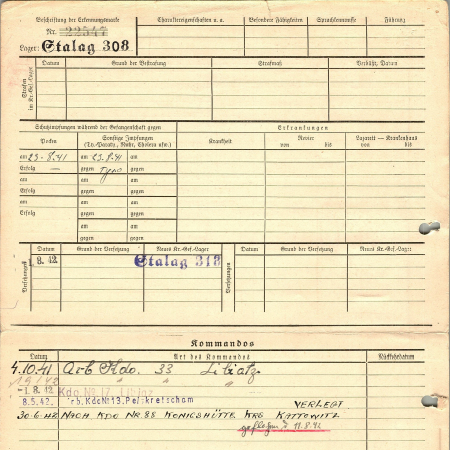 Beschriftung der Erkennungsmarke
Nr.
Lager: Stalag 308
Charaktereigenschaften u. a.
Besondere Fähigkeiten
Sprachkenntnisse
Führung
Strafen im Kr.-Gef.-Lager
Datum
Grund der Bestrafung
Strafmaß
Verbüßt, Datum
Schutzimpfungen während der Gefangenschaft gegen
Erkrankungen
Pocken
Sonstige Impfungen
(Ty.-Paraty., Ruhr, Cholera usw.)
Krankheit
Revier
von bis
Lazarett — Krankenhaus
von bis
am 23.8.41 am 23.8.41 am
Erfolg — gegen gegen
am am am
Erfolg gegen gegen
am am am
Erfolg gegen gegen
am am
gegen gegen
Versetzungen
Datum
Grund der Versetzung
Neues Kr.-Gef.-Lager
Versetzungen
Datum
Grund der Versetzung
Neues Kr.-Gef.-Lager
1.8.42. Stalag 318
Kommandos
Datum
Art des Kommandos
Rückkehrdatum
4.10.41 Arb Kdo. 33
1.8.42 Kdo No 17
8.5.42. Arb. Kdo Nr 13.
VERLEGT
30.6.42 NACH KDO NR. 88 KÖNIGSHÜTTE KRS KATTOWITZ
11.8.42